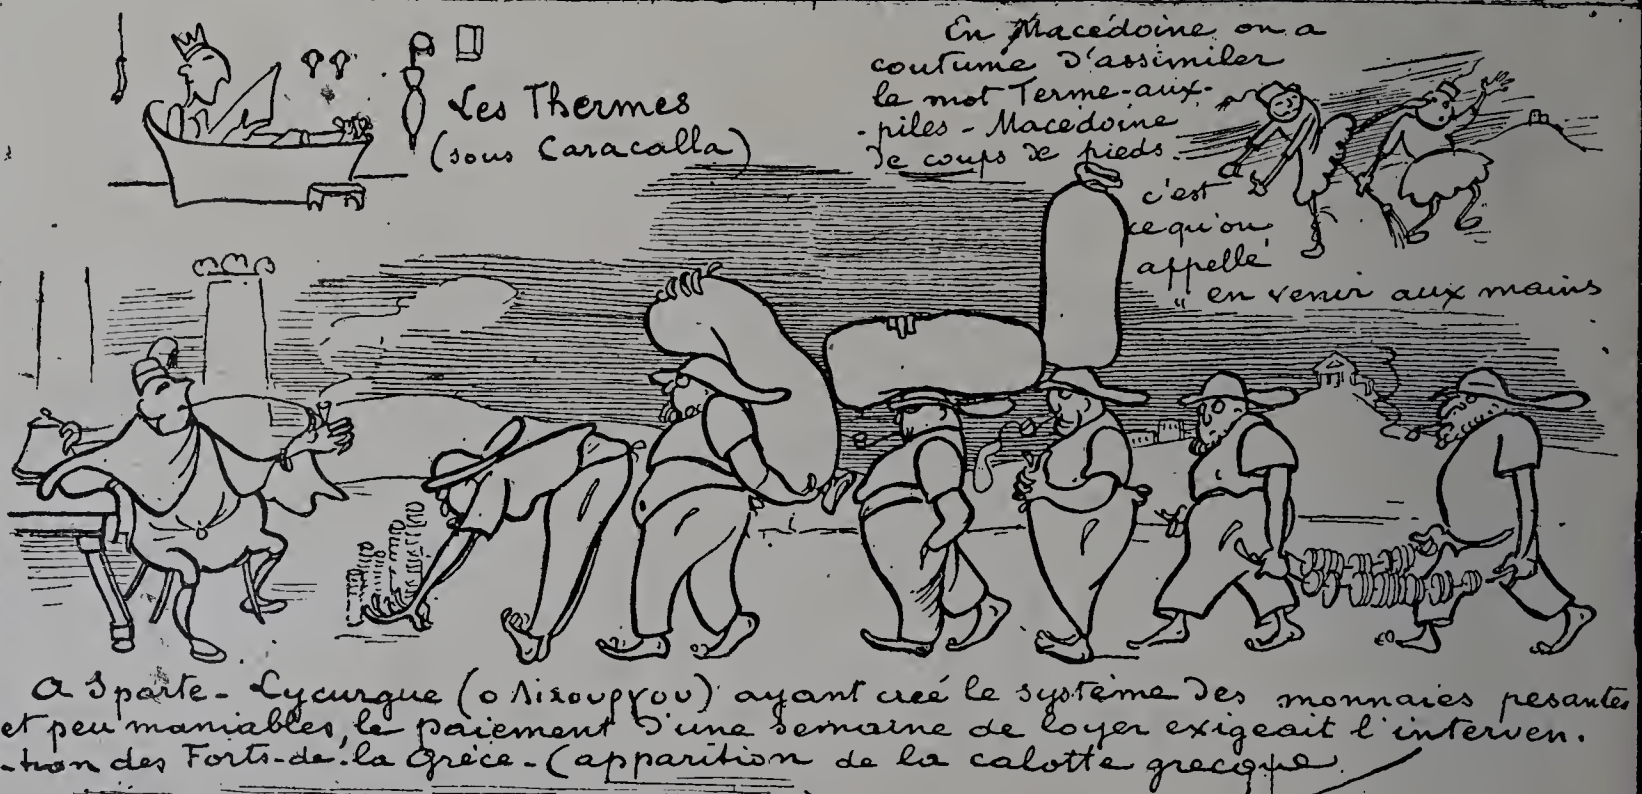 Les Thermes
(sous Caracalla)
En Macédoine on a
coutume d'assimiler
le mot Terme-aux-
-piles - Macédoine
de coups de pieds.
c'est
ce qu'on
appelle
" en venir aux mains
A Sparte - Lycurgue (o Λικουργου) ayant créé le système des monnaies pesantes
et peu maniables, le paiement d'une semaine de loyer exigeait l'interven.
-tion des Forts-de-la Grèce - (apparition de la calotte grecque